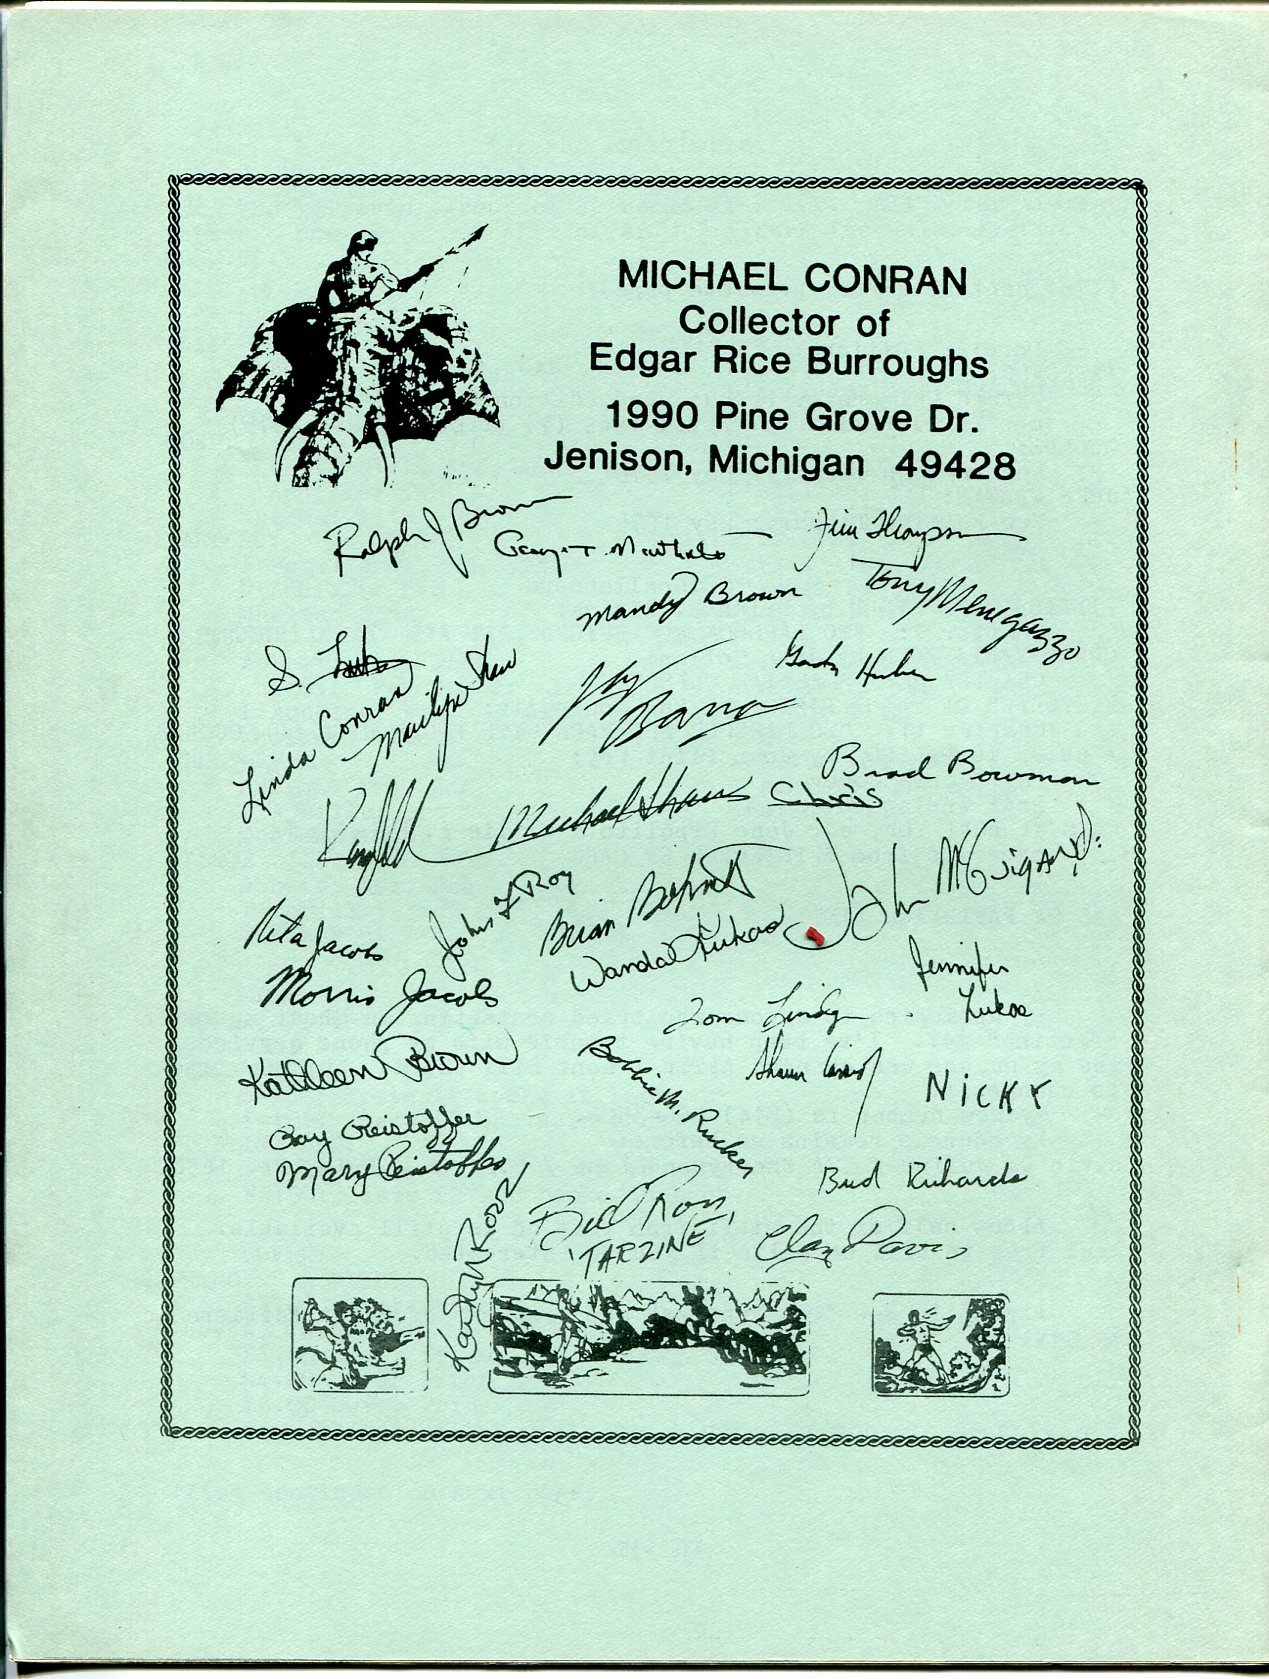 MICHAEL CONRAN
Collector of
Edgar Rice Burroughs
1990 Pine Grove Dr.
Jenison, Michigan 49428
Ralph J Brown
George T. McWhorter
Jim Thompson
Mandy Brown
Tony Menegazzo
S.
Huber
Linda Conran
Marilyn Shaw
Barra
Brad Bowman
Michael Shaw
Chris
John McGuigan
Rita Jacobs
John F Roy
Brian Bohnett
Wanda Lukas
Morris Jacobs
Jennifer
Lukas
Tom
Kathleen Brown
Bobbie M. Rucker
Shaun
NICKY
Ray Reistoffer
Mary Reistoffer
Bud Richards
Kathy Ross
Bill Ross,
'TARZINE'
Clay Davis